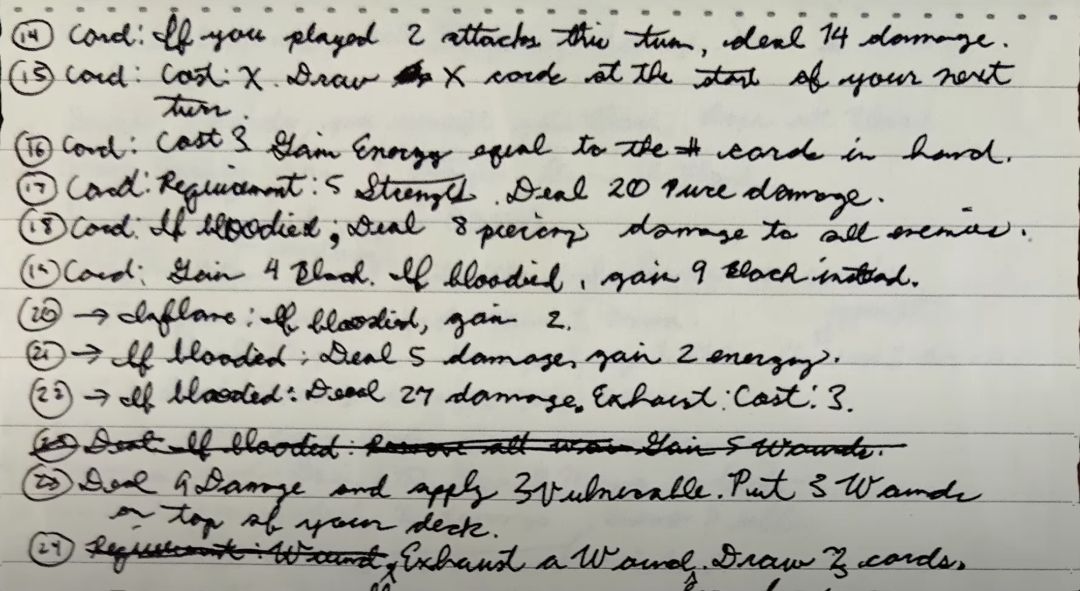 (14) Card: If you played 2 attacks this turn, deal 14 damage.
(15) Card: Cost: X. Draw X cards at the start of your next
turn.
(16) Card: Cost 3 Gain Energy equal to the # cards in hand.
(17) Card: Requirement: 5 Strength. Deal 20 Pure damage.
(18) Card: If bloodied; Deal 8 piercing damage to all enemies.
(19) Card: Gain 4 Block. If bloodied, gain 9 Block instead.
(20) → Inflame: If bloodied, gain 2.
(21) → If blooded: Deal 5 damage, gain 2 energy.
(22) → If blooded: Deal 27 damage. Exhaust: Cost: 3.
If blooded: Remove all Gain 5 Wounds.
(23) Deal 9 Damage and apply 3 Vulnerable. Put 3 Wounds
on top of your deck.
(24) Requirement: Wound, Exhaust a Wound. Draw cards.